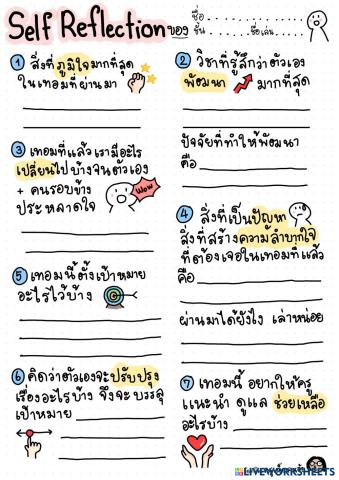 Self Reflection ของ ชื่อ
ชั้น ชื่อเล่น
① สิ่งที่ภูมิใจมากที่สุด
ในเทอมที่ผ่านมา
② วิชาที่รู้สึกว่าตัวเอง
พัฒนา มากที่สุด
ปัจจัยที่ทำให้พัฒนา
คือ
③ เทอมที่แล้ว เรามีอะไร
เปลี่ยนไปบ้างจนตัวเอง
+ คนรอบข้าง
ประหลาดใจ
WOW
④ สิ่งที่เป็นปัญหา
สิ่งที่สร้างความลำบากใจ
ที่ต้องเจอในเทอมที่แล้ว
คือ
ผ่านมาได้ยังไง เล่าหน่อย
⑤ เทอมนี้ตั้งเป้าหมาย
อะไรไว้บ้าง
⑥ คิดว่าตัวเองจะปรับปรุง
เรื่องอะไรบ้าง จึงจะบรรลุ
เป้าหมาย
⑦ เทอมนี้ อยากให้ครู
แนะนำ ดูแล ช่วยเหลือ
อะไรบ้าง
LIVEWORKSHEETS